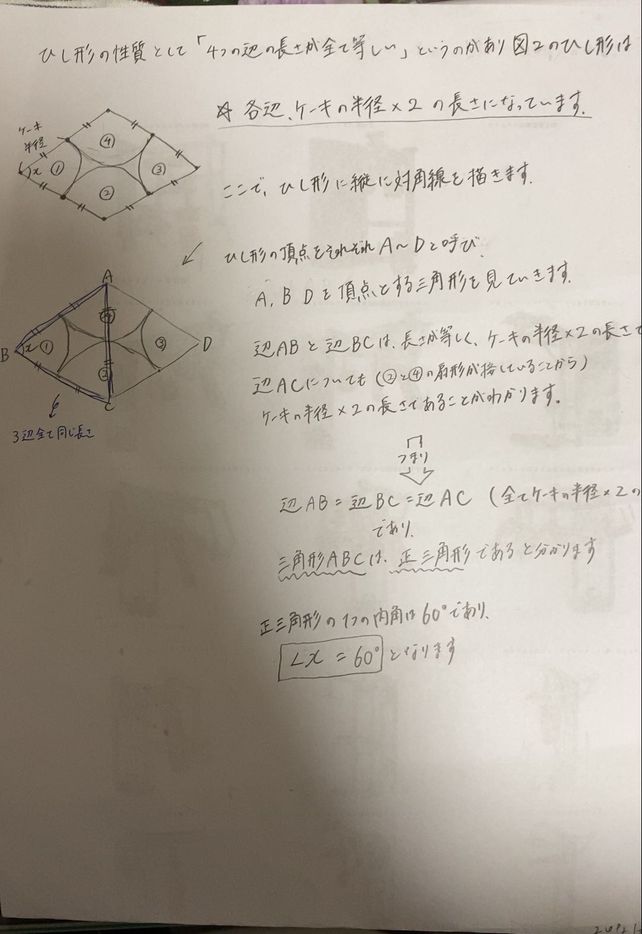 ひし形の性質として「4つの辺の長さが全て等しい」というのがあり図2のひし形は
☆ 各辺、ケーキの半径×2の長さになっています。
ケーキ
半径
x
①
②
③
④
ここで、ひし形に縦に対角線を描きます。
ひし形の頂点をそれぞれA～Dと呼び、
A, B Dを頂点とする三角形を見ていきます。
A
B
C
D
x
①
②
③
④
3辺全て同じ長さ
辺ABと辺BCは、長さが等しく、ケーキの半径×2の長さで
辺ACについても(②と④の扇形が接していることから)
ケーキの半径×2の長さであることがわかります。
つまり
辺AB=辺BC=辺AC (全てケーキの半径×2の
であり、
三角形ABCは、正三角形であると分かります
正三角形の1つの内角は60°であり、
∠x = 60°となります